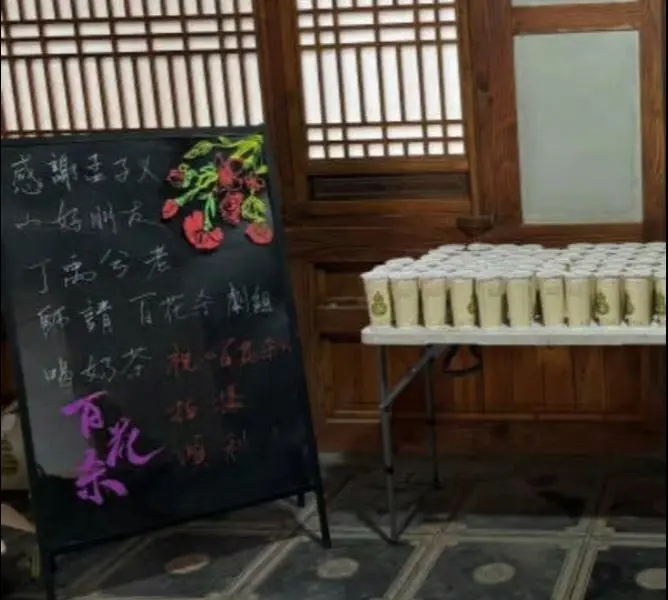 感謝孟子义
小好朋友
丁禹兮老
師請百花杀劇組
喝奶茶
祝“百花杀”
拍攝
順利
百花
杀